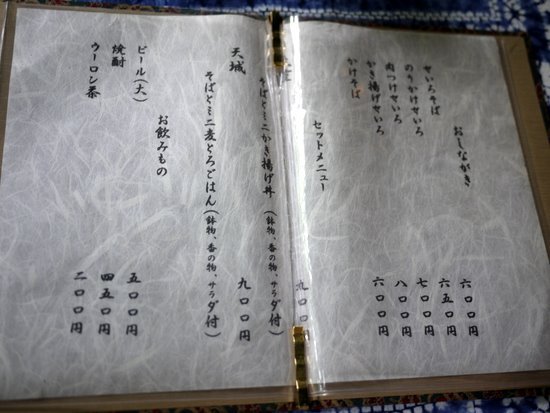 おしながき
せいろそば 六〇〇円
のりかけせいろ 六五〇円
肉つけせいろ 七〇〇円
かき揚げせいろ 八〇〇円
かけそば 六〇〇円
セットメニュー
そばとミニかき揚げ丼 (鉢物、香の物、サラダ付) 九〇〇
天城
そばとミニ麦とろごはん (鉢物、香の物、サラダ付) 九〇〇円
お飲みもの
ビール(大) 五〇〇円
焼酎 四五〇円
ウーロン茶 二〇〇円